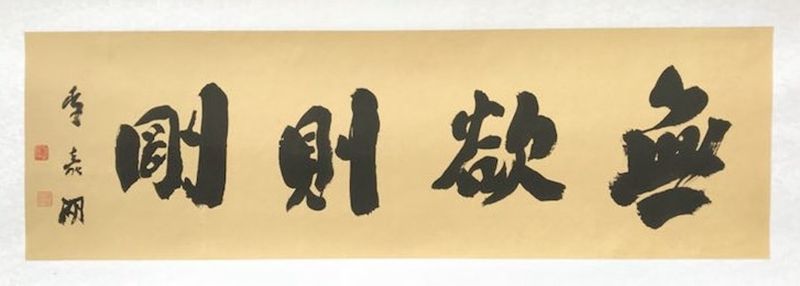 無欲則剛
李嘉